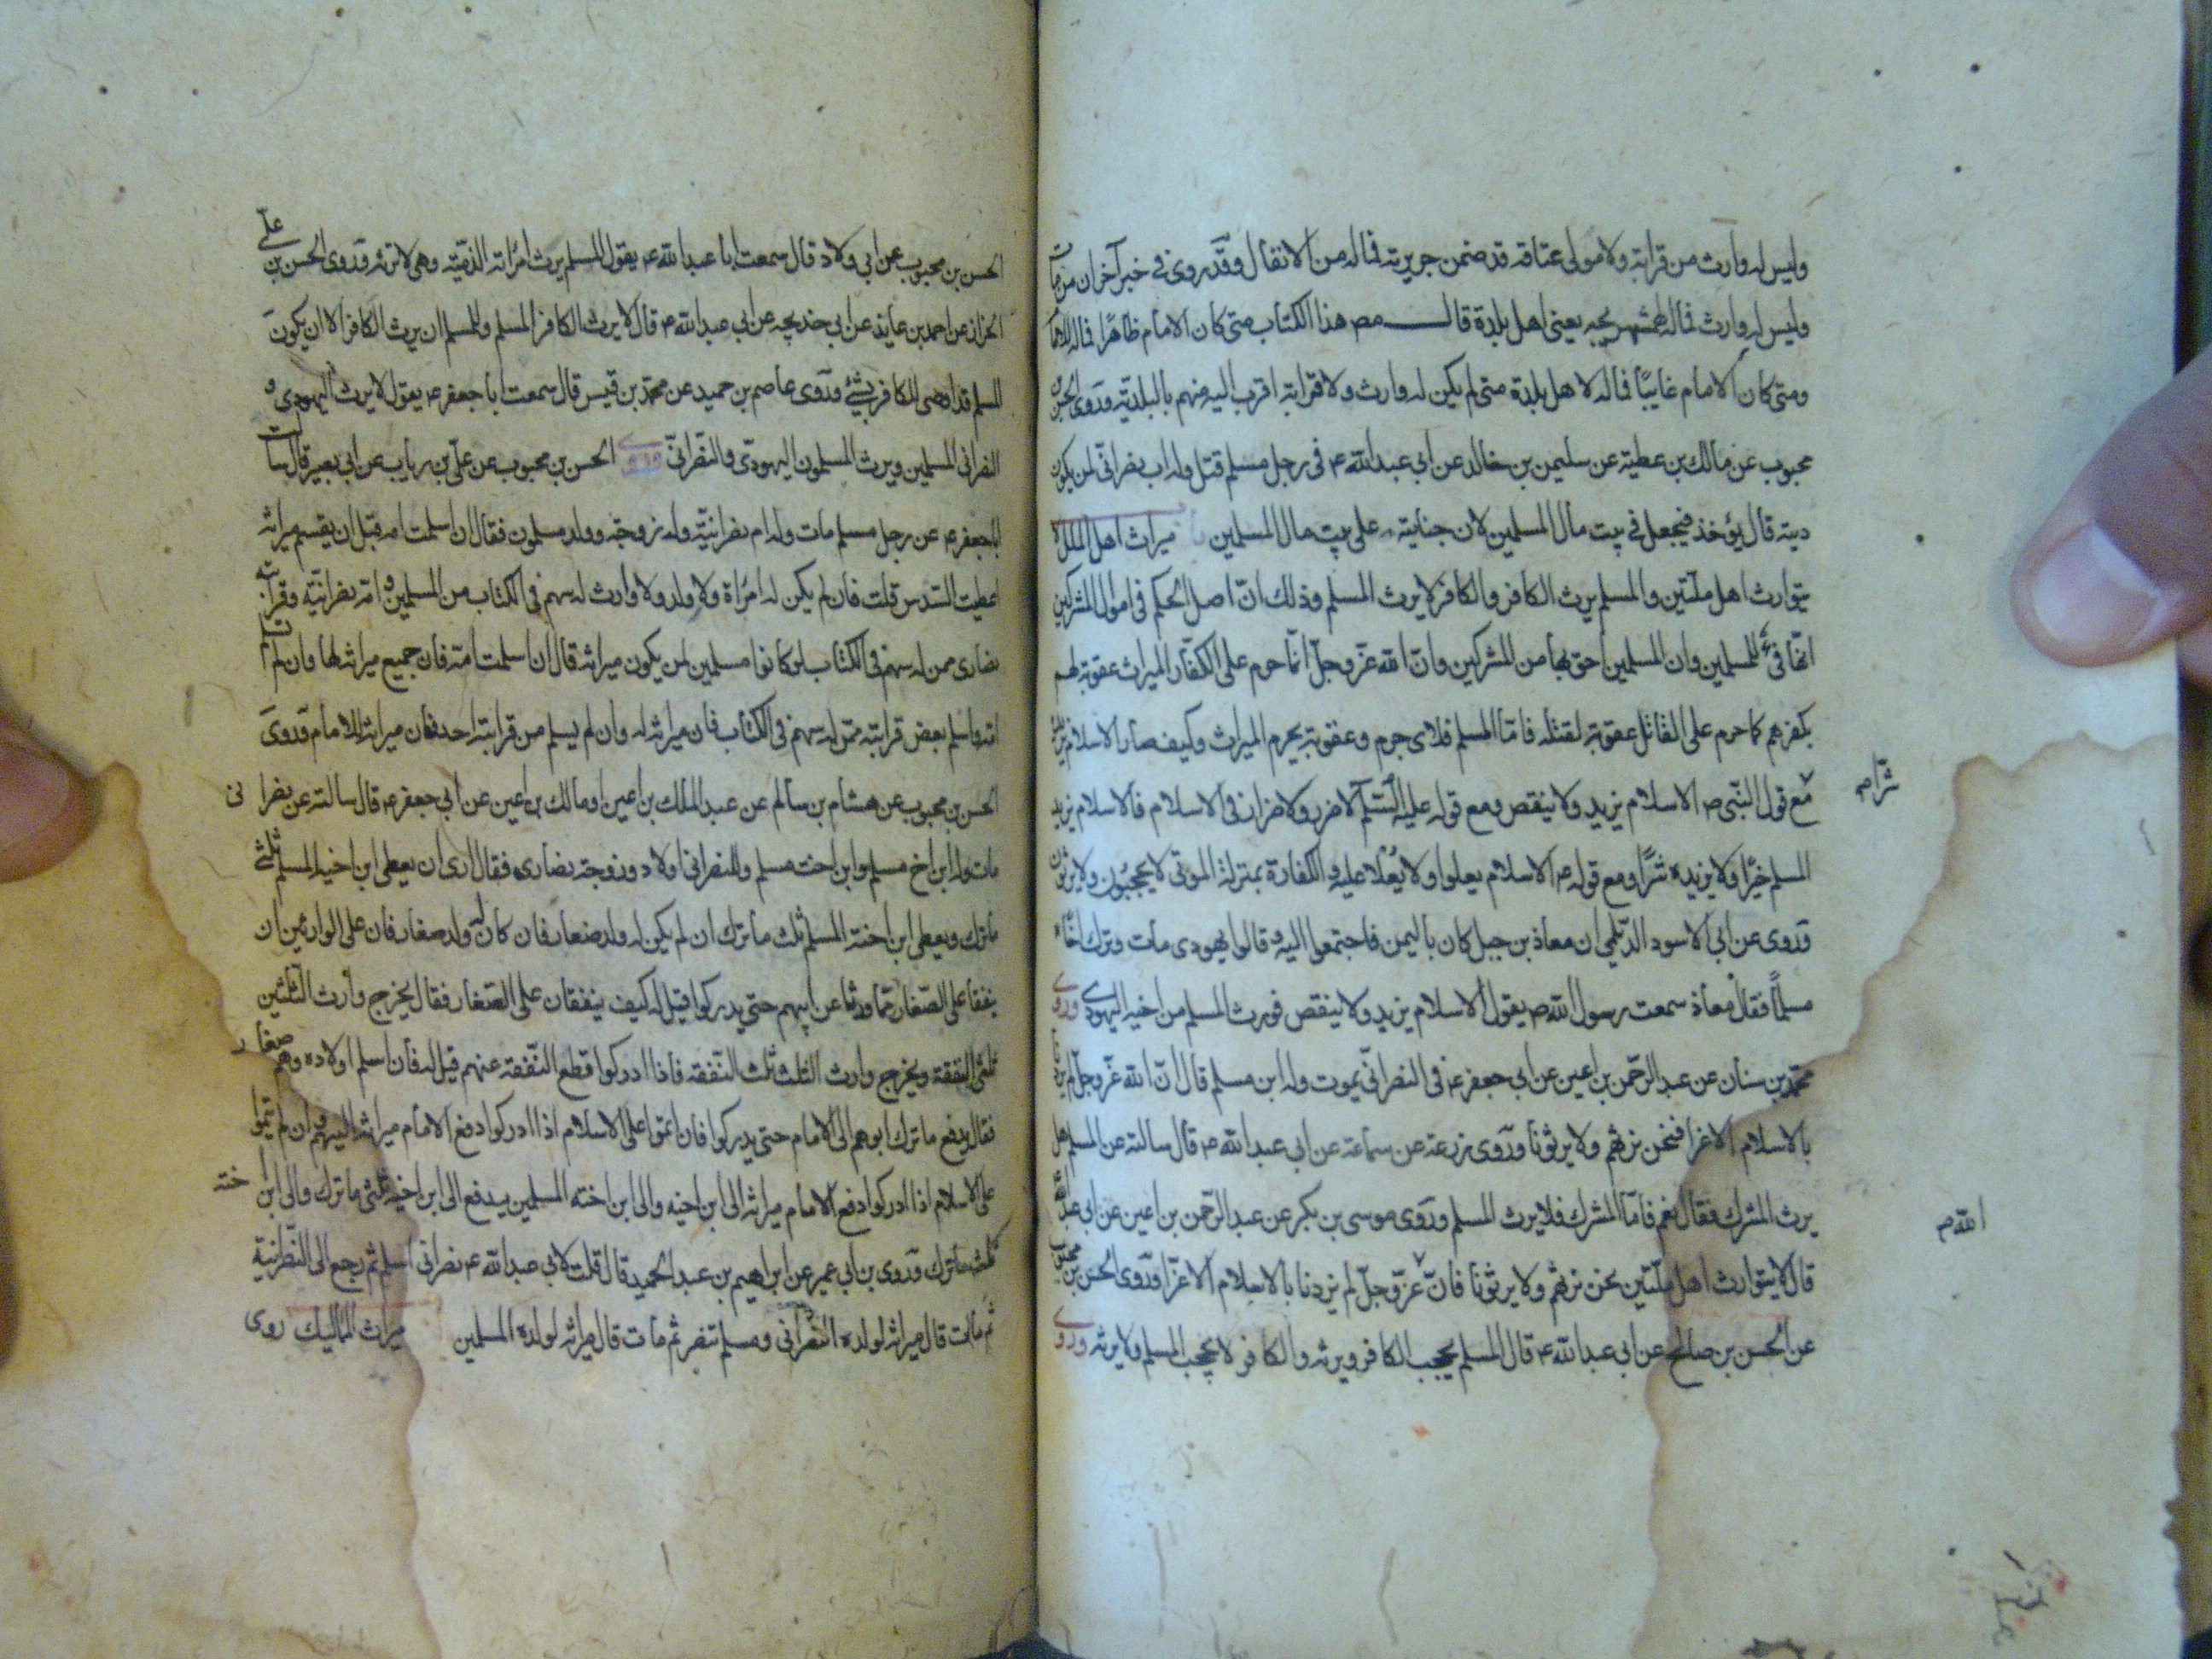 وليس له وارث من قرابته ولا مولى عتاقه قد ضمن جريرته فماله من الانفال وقد روى في خبر آخر ان من مات
وليس له وارث فماله لهمشهريجه يعنى اهل بلدة قال مص هذا الكتاب متى كان الامام ظاهرا فماله للامام
ومتى كان الامام غايبا فماله لاهل بلدة متى لم يكن له وارث ولا قرابة اقرب اليه منهم بالبلدية وروى الحسن بن
محبوب عن مالك بن عطية عن سليمن بن خالد عن ابي عبد الله ع في رجل مسلم قتل وله اب نصراني لمن يكون
ديته قال يؤخذ فيجعل في بيت مال المسلمين لان جنايته على بيت مال المسلمين ميراث اهل الملل لا
يتوارث اهل ملتين والمسلم يرث الكافر والكافر لا يرث المسلم وذلك ان اصل الحكم في اموال المشركين
انها فيء للمسلمين وان المسلمين احق بها من المشركين وان الله عز وجل انما حرم على الكفار الميراث عقوبة لهم
بكفرهم كما حرم على القاتل عقوبة لقتله فاما المسلم فلاى جرم وعقوبة يحرم الميراث وكيف صار الاسلام يزيده
شرا م
مع قول النبي ص الاسلام يزيد ولا ينقص ومع قوله عليه السلم لا ضرر ولا ضرار في الاسلام فالاسلام يزيد
المسلم خيرا ولا يزيده شرا ومع قوله ع الاسلام يعلوا ولا يعلا عليه والكفارة بمنزلة الموتى لا يحجبون ولا يرثون
وروى عن ابي الاسود الديلمي ان معاذ بن جبل كان باليمن فاجتمعوا اليه وقالوا يهودى مات وترك اخاء
مسلما فقال معاذ سمعت رسول الله ص يقول الاسلام يزيد ولا ينقص فورث المسلم من اخيه اليهودي وروى
محمد بن سنان عن عبد الرحمن بن اعين عن ابي جعفر ع في النصراني يموت وله ابن مسلم قال ان الله عز وجل لم يزدنا
بالاسلام الا عزا فنحن نرثهم ولا يرثونا وروى زرعة عن سماعة عن ابي عبد الله ع قال سالته عن المسلم هل
يرث المشرك فقال نعم فاما المشرك فلا يرث المسلم وروى موسى بن بكر عن عبد الرحمن بن اعين عن ابي عبد الله ع
الله م
قال لا يتوارث اهل ملتين نحن نرثهم ولا يرثونا فان عز وجل لم يزدنا بالاسلام الا عزا وروى الحسن بن محبوب
عن الحسن بن صالح عن ابي عبد الله ع قال المسلم يحجب الكافر ويرثه والكافر لا يحجب المسلم ولا يرثه وروى
الحسن بن محبوب عن ابي ولاد قال سمعت ابا عبد الله ع يقول المسلم يرث امراته الذمية وهي لا ترثه وروى الحسن بن علي
الخزاز عن احمد بن عايذ عن ابي خديجه عن ابي عبد الله ع قال لا يرث الكافر المسلم وللمسلم ان يرث الكافر الا ان يكون
المسلم قد اوصى للكافر بشيء وروى عاصم بن حميد عن محمد بن قيس قال سمعت ابا جعفر ع يقول لا يرث اليهودى و
النصراني المسلمين ويرث المسلمون اليهودى والنصراني وروى الحسن بن محبوب عن علي بن رياب عن ابي بصير قال سالت
ابا جعفر ع عن رجل مسلم مات وله ام نصرانية وله زوجة وولد مسلمون فقال ان اسلمت امه قبل ان يقسم ميراثه
اعطيت السدس قلت فان لم يكن له امراة ولا ولد ولا وارث له سهم في الكتاب من المسلمين وامه نصرانية وقرابته
نصارى ممن له سهم في الكتاب لو كانوا مسلمين لمن يكون ميراثه قال ان اسلمت امه فان جميع ميراثه لها وان لم تسلم
امه واسلم بعض قرابته ممن له سهم في الكتاب فان ميراثه له وان لم يسلم من قرابته احد فان ميراثه للامام وروى
الحسن بن محبوب عن هشام بن سالم عن عبد الملك بن اعين او مالك بن اعين عن ابي جعفر ع قال سالته عن نصرا نى
مات وله ابن اخ مسلم وابن اخت مسلم وللنصراني اولاد وزوجة نصارى فقال ارى ان يعطى ابن اخيه المسلم ثلثى
ماترك ويعطى ابن اخته المسلم ثلث ماترك ان لم يكن له ولد صغار فان كان له ولد صغار فان على الوارثين ان
ينفقا على الصغار مما ورثا عن ابيهم حتى يدركوا قيل له كيف ينفقان على الصغار فقال يخرج وارث الثلثين
ثلثى النفقة ويخرج وارث الثلث ثلث النفقه فاذا ادركوا قطع النفقة عنهم قيل له فان اسلم اولاده وهم صغار
فقال يدفع ماترك ابوهم الى الامام حتى يدركوا فان اتموا على الاسلام اذا ادركوا دفع الامام ميراثه اليهم وان لم يتموا
على الاسلام اذا ادركوا دفع الامام ميراثه الى ابن اخيه والى ابن اخته المسلمين يدفع الى ابن اخيه ثلثى ماترك والى ابن اخته
ثلث ماترك وروى بن ابي عمير عن ابراهيم بن عبد الحميد قال قلت لابي عبد الله ع نصراني اسلم ثم رجع الى النصرانية
ثم مات قال ميراثه لولده النصراني ومسلم تنصر ثم مات قال ميراثه لولده المسلمين ميراث المماليك روى